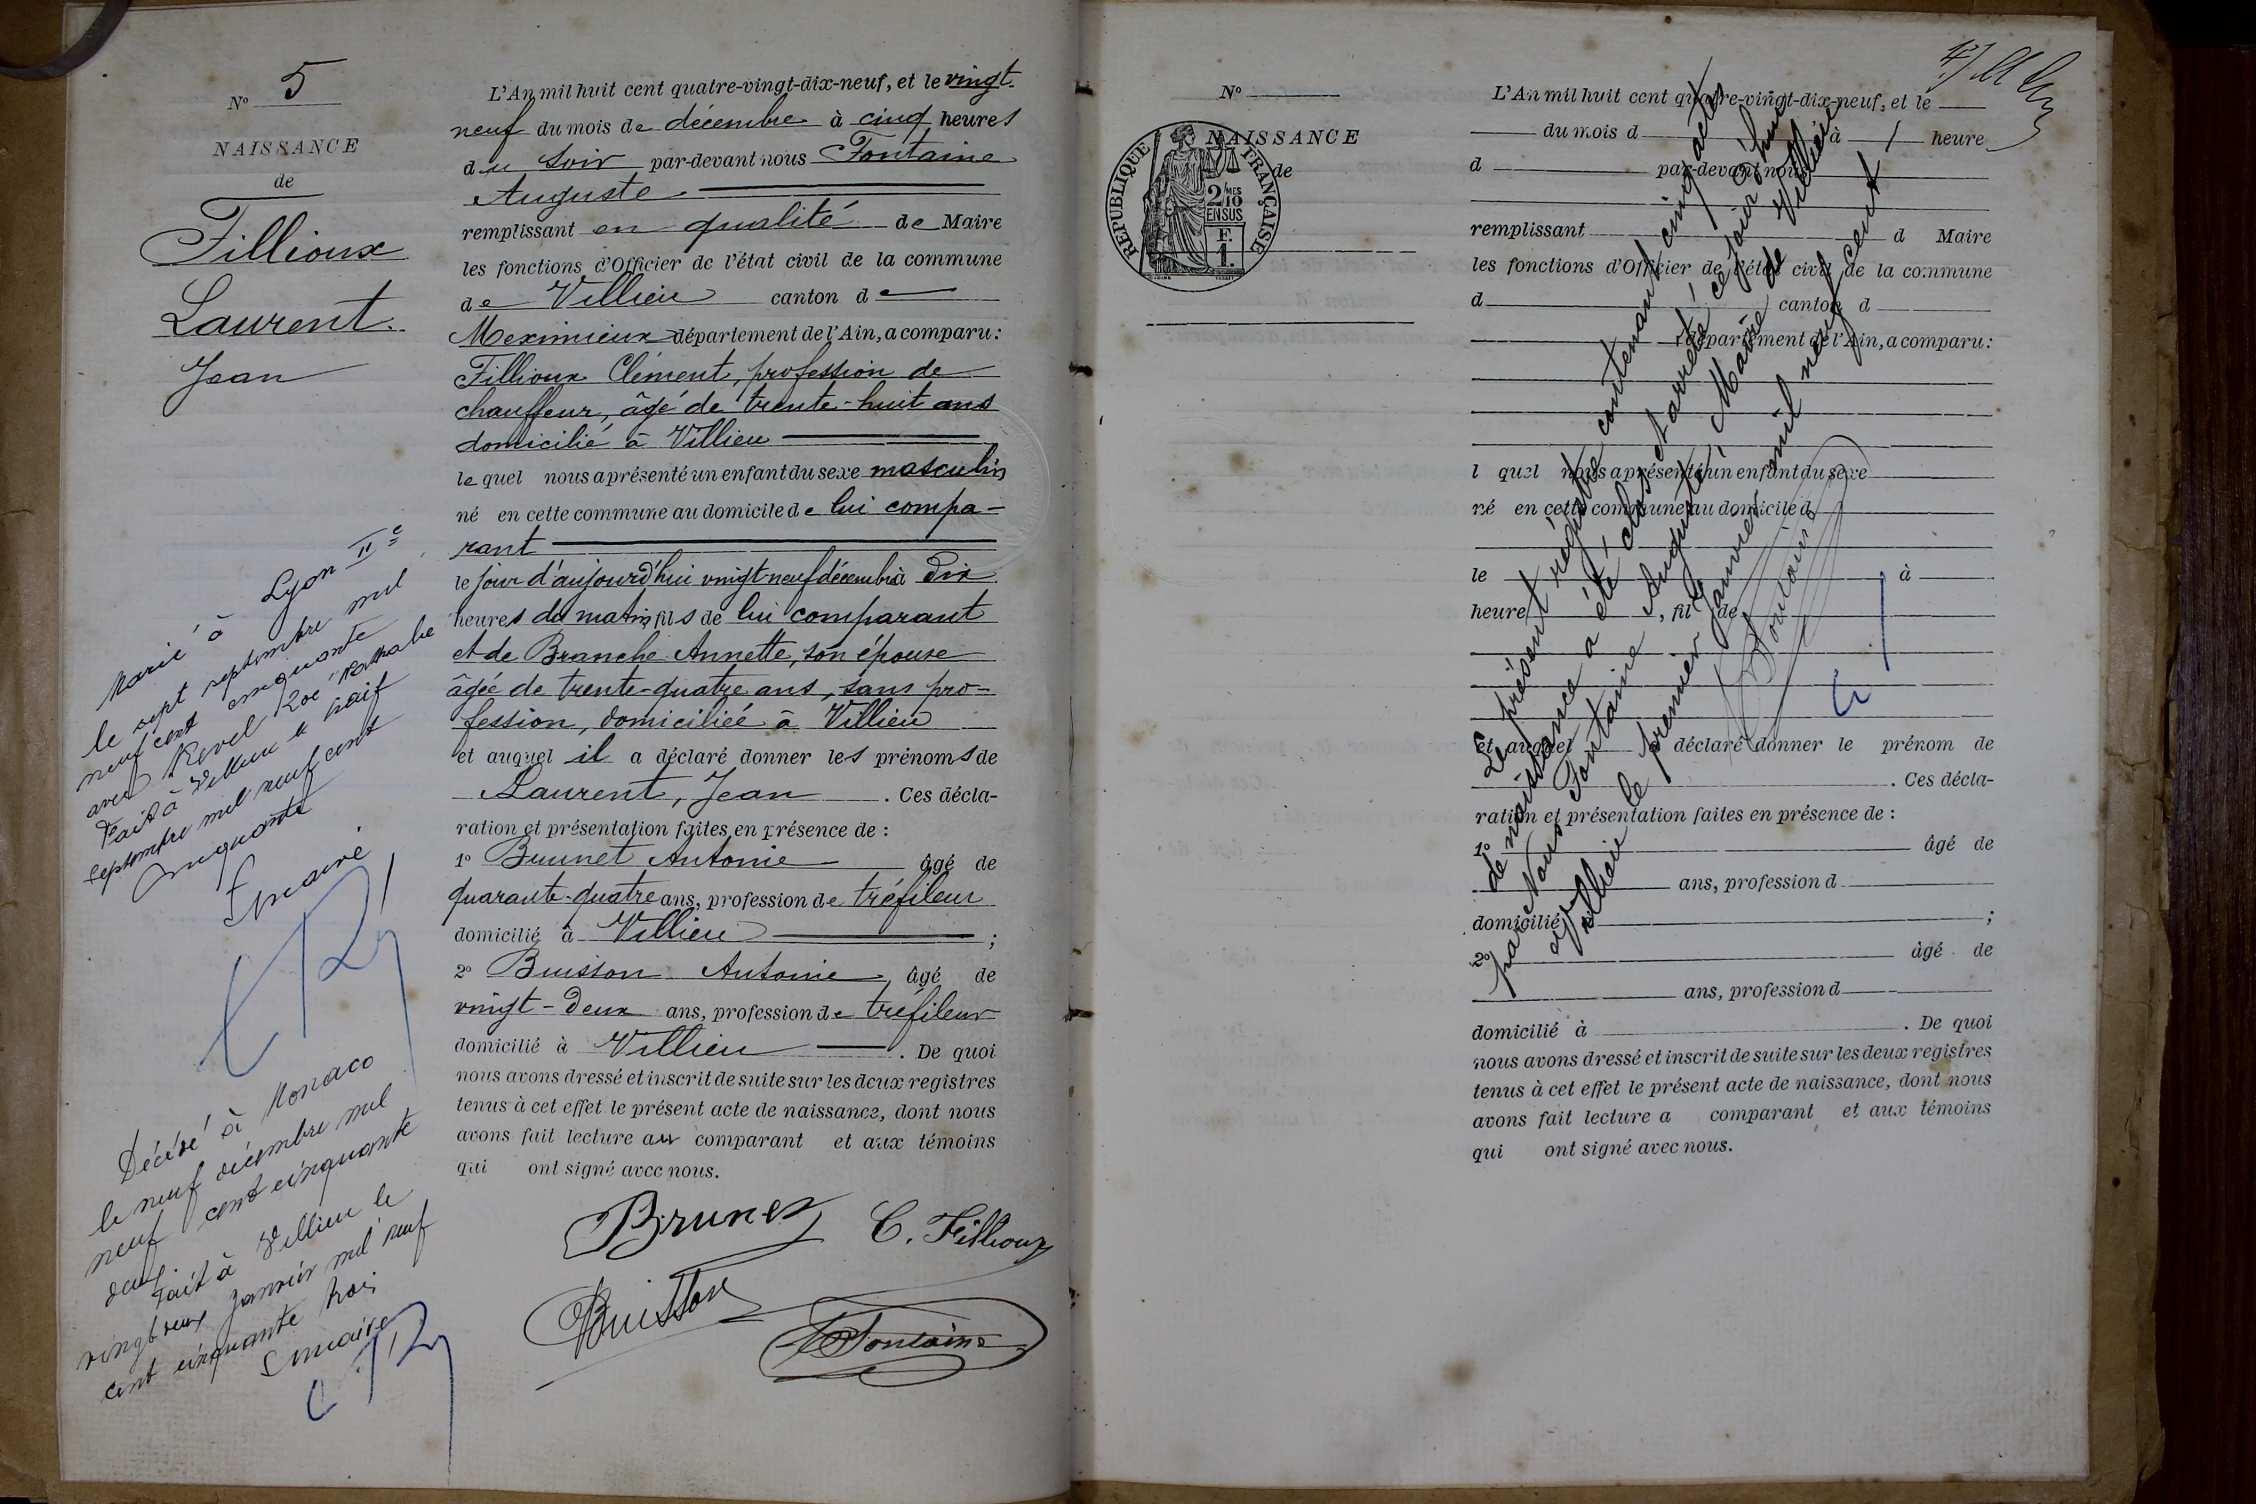 N° 5
NAISSANCE
de
Fillioux
Laurent
Jean
L'An mil huit cent quatre-vingt-dix-neuf, et le vingt-
neuf du mois de décembre à cinq heures
du soir par-devant nous Fontaine
Auguste
remplissant en qualité de Maire
les fonctions d'Officier de l'état civil de la commune
de Villieu canton de
Meximieux département de l'Ain, a comparu:
Fillioux Clément, profession de
chauffeur, âgé de trente-huit ans
domicilié à Villieu
lequel nous a présenté un enfant du sexe masculin
né en cette commune au domicile de lui compa-
rant
le jour d'aujourd'hui vingt neuf décembre à dix
heures du matin, fils de lui comparant
et de Branche Annette, son épouse
âgée de trente-quatre ans, sans pro-
fession, domiciliée à Villieu
et auquel il a déclaré donner les prénoms de
Laurent, Jean. Ces décla-
ration et présentation faites en présence de :
1° Brunet Antoine âgé de
quarante-quatre ans, profession de tréfileur
domicilié à Villieu ;
2° Buisson Antoine âgé de
vingt-deux ans, profession de tréfileur
domicilié à Villieu. De quoi
nous avons dressé et inscrit de suite sur les deux registres
tenus à cet effet le présent acte de naissance, dont nous
avons fait lecture au comparant et aux témoins
qui ont signé avec nous.
Brunet C. Fillioux
Buisson
Fontaine
Marié à Lyon IIe
le sept septembre mil
neuf cent cinquante
avec Revel
Fait à Villieu le neuf
septembre mil neuf cent
cinquante
Le maire
Décédé à Monaco
le neuf décembre mil
neuf cent cinquante
deux.
Fait à Villieu le
vingt deux janvier mil neuf
cent cinquante trois
Le maire
N°
NAISSANCE
de
REPUBLIQUE FRANÇAISE
2/10 MES
EN SUS
F.
1.
L'An mil huit cent quatre-vingt-dix-neuf, et le
du mois d à heure
d par-devant nous
remplissant d Maire
les fonctions d'Officier de l'état civil de la commune
d canton d
département de l'Ain, a comparu:
l quel nous a présenté un enfant du sexe
né en cette commune au domicile d
le à
heure , fil de
et auquel a déclaré donner le prénom de
. Ces décla-
ration et présentation faites en présence de :
1° âgé de
ans, profession d
domicilié ;
2° âgé de
ans, profession d
domicilié à . De quoi
nous avons dressé et inscrit de suite sur les deux registres
tenus à cet effet le présent acte de naissance, dont nous
avons fait lecture a comparant et aux témoins
qui ont signé avec nous.
Le présent régistre contenant cinq actes
de naissance a été clos et arrêté ce jour d'hui
par Nous Fontaine Auguste, Maire de Villieu
Villieu le premier Janvier mil neuf cent
Fontaine